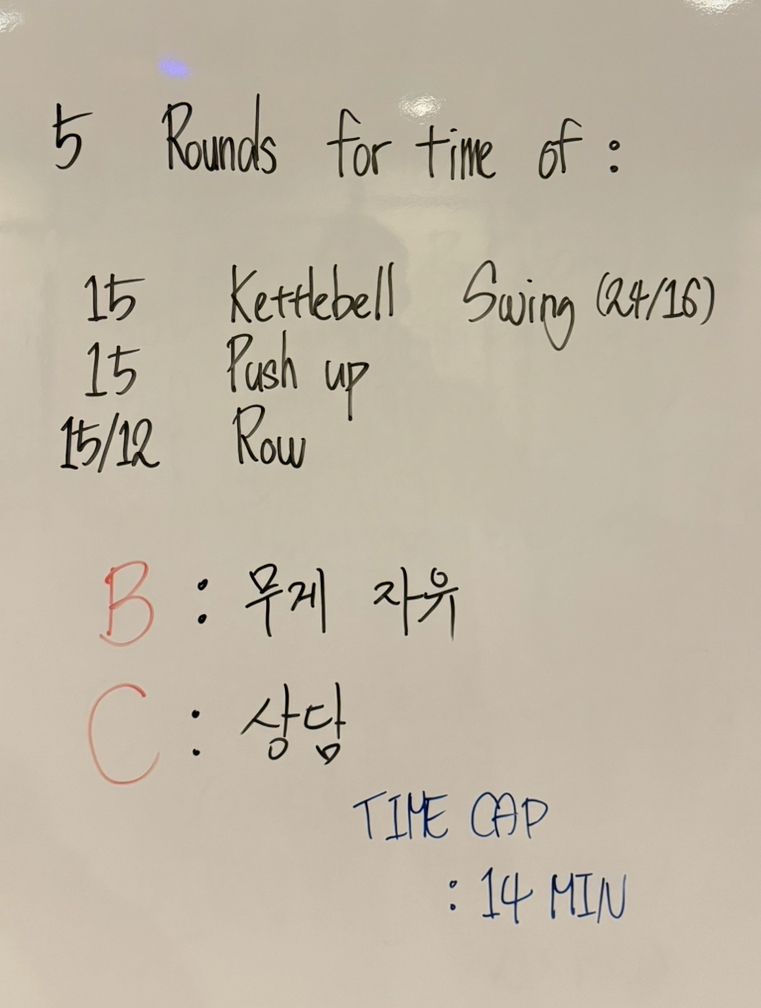 5 Rounds for time of :
15 Kettlebell Swing (24/16)
15 Push up
15/12 Row
B : 무게 자유
C : 상담
TIME CAP
: 14 MIN